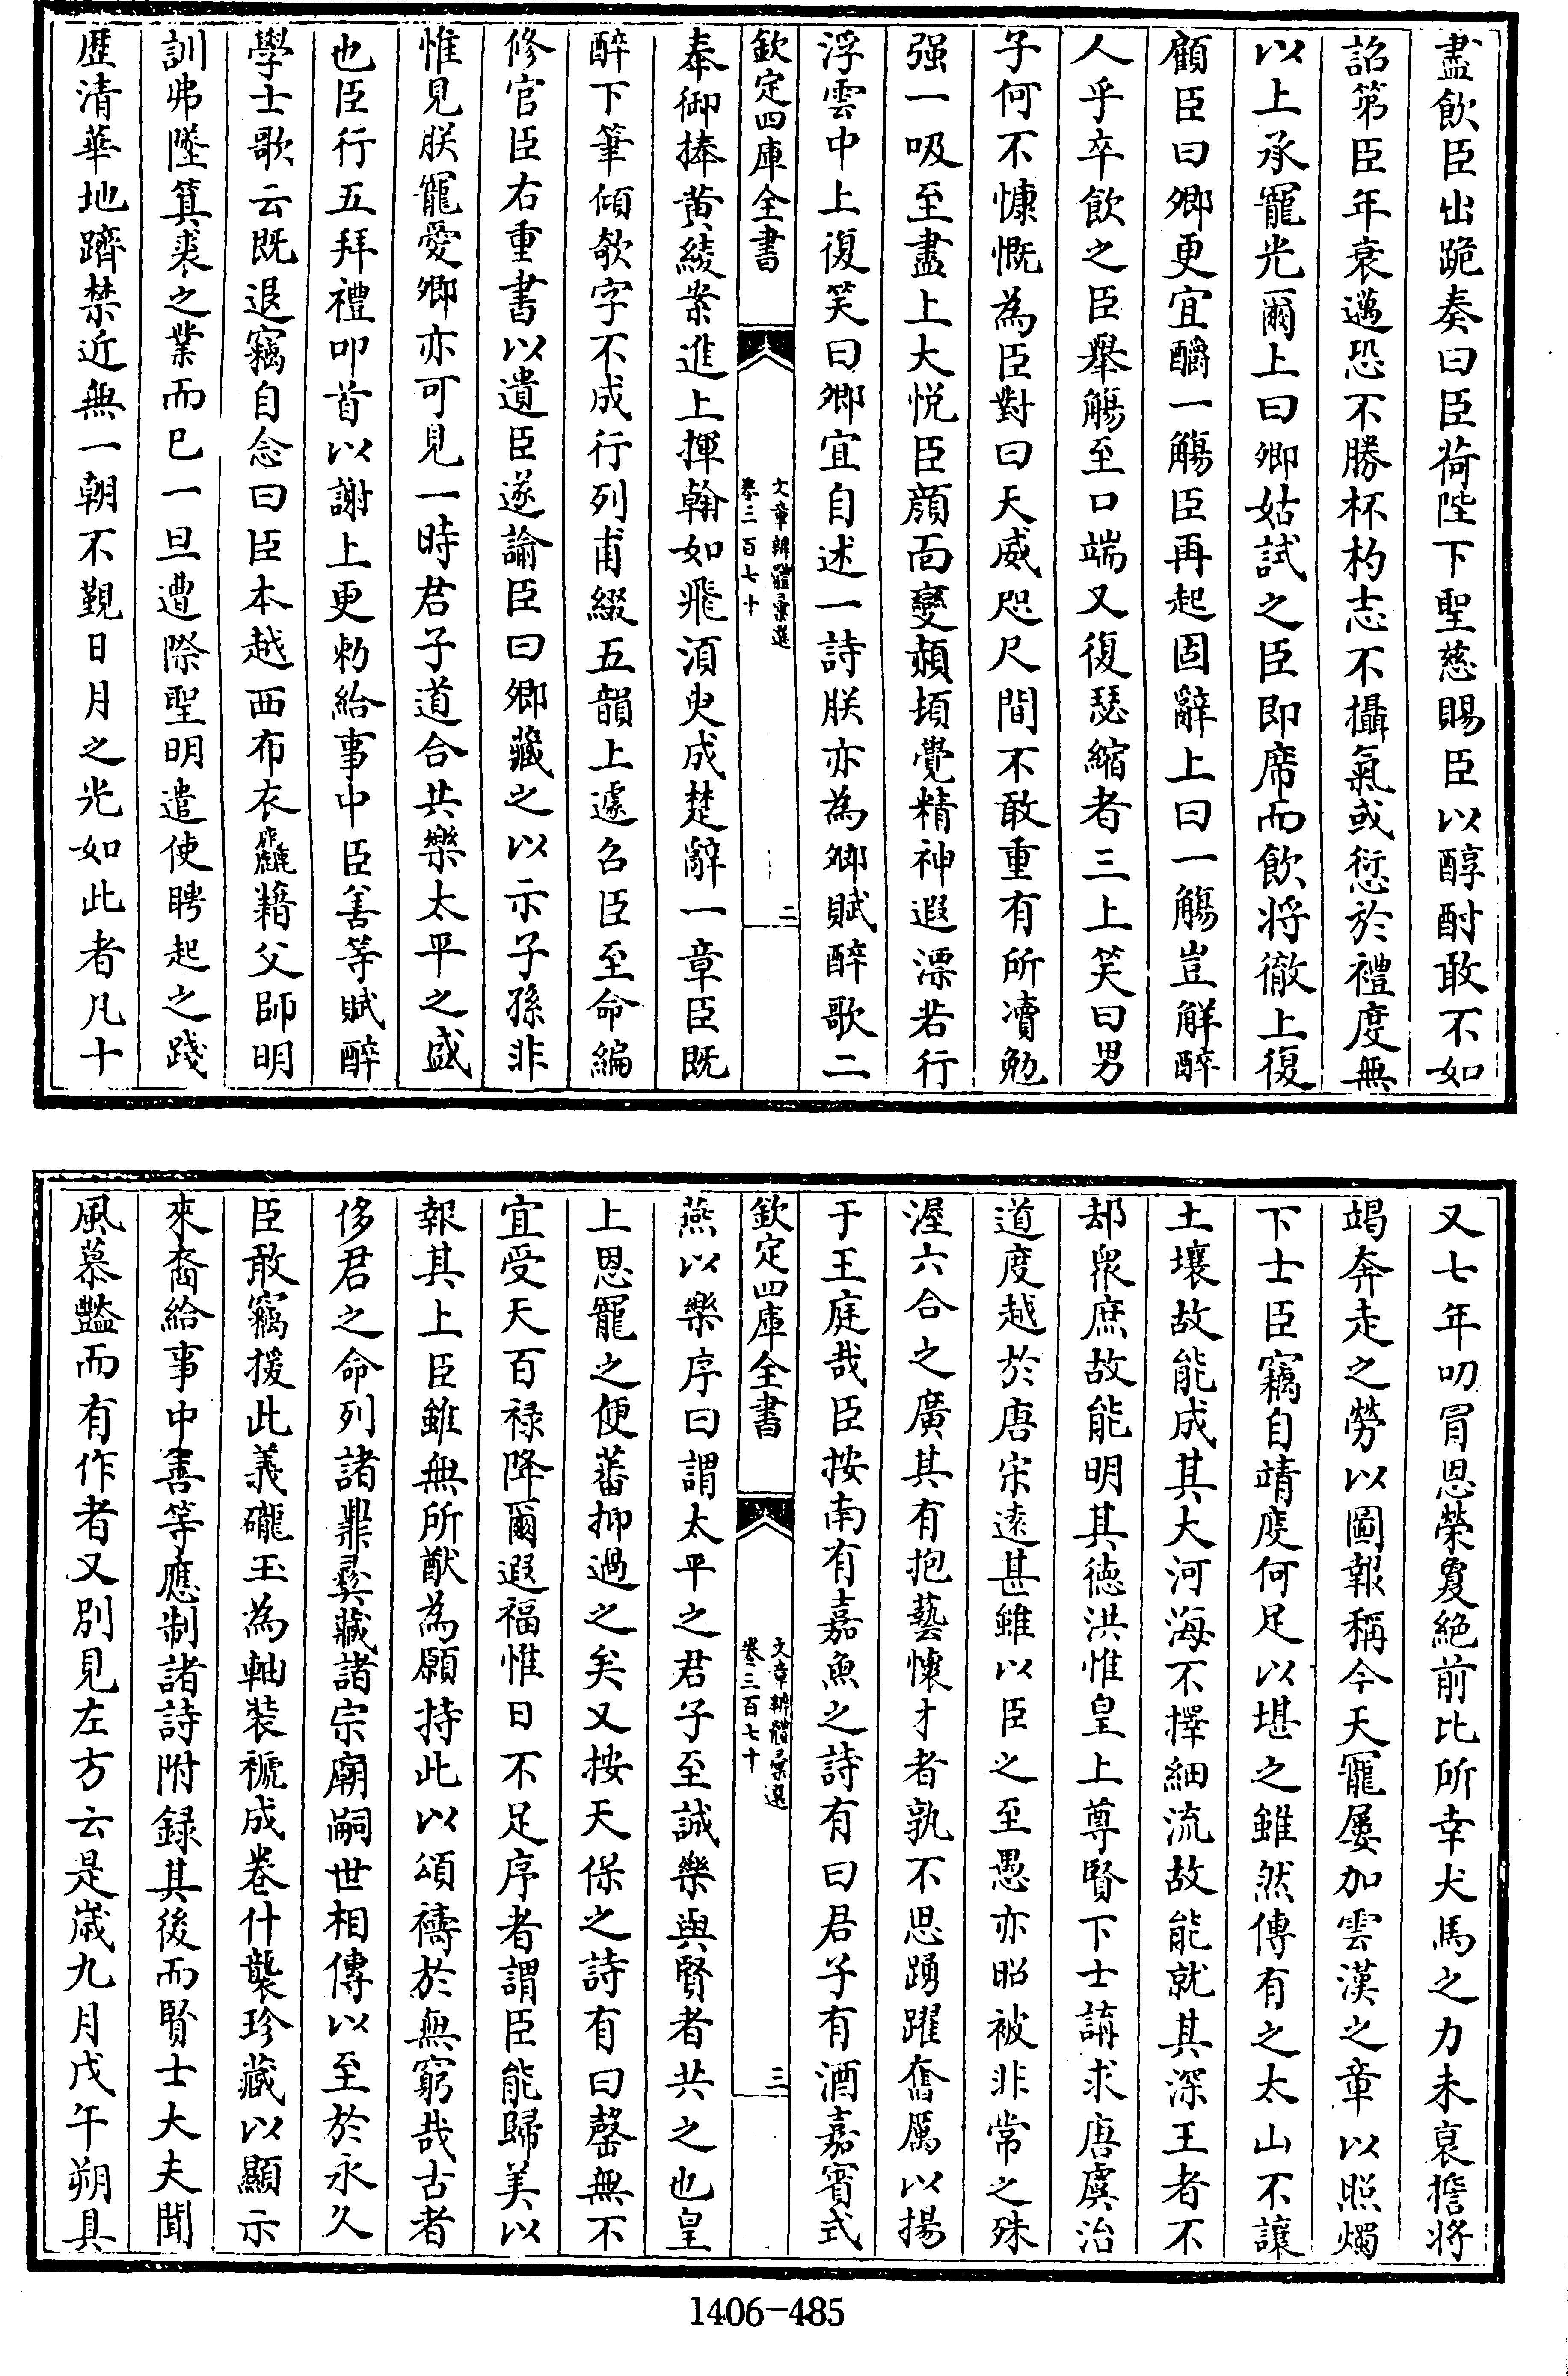 盡飲臣出跪奏曰臣荷陛下聖慈賜臣以醇酎敢不如
詔第臣年衰邁恐不勝杯杓志不攝氣或愆於禮度無
以上承寵光爾上曰卿姑試之臣即席而飲将徹上復
顧臣曰卿更宜釂一觴臣再起固辭上曰一觴豈觧醉
人乎卒飲之臣舉觴至口端又復瑟縮者三上笑曰男
子何不慷慨為臣對曰天威咫尺間不敢重有所凟勉
强一吸至盡上大悦臣顔面變赬頃覺精神遐漂若行
浮雲中上復笑曰卿宜自述一詩朕亦為卿賦醉歌二
欽定四庫全書
文章辨體彚選
卷三百七十
二
奉御捧黄綾案進上揮翰如飛須臾成楚辭一章臣既
醉下筆傾欹字不成行列甫綴五韻上遽召臣至命編
修官臣右重書以遺臣遂諭臣曰卿藏之以示子孫非
惟見朕寵愛卿亦可見一時君子道合共樂太平之盛
也臣行五拜禮叩首以謝上更勑給事中臣善等賦醉
學士歌云既退竊自念曰臣本越西布衣麤藉父師明
訓弗墜箕裘之業而已一旦遭際聖明遣使聘起之踐
歷清華地躋禁近無一朝不覲日月之光如此者凡十
又七年叨冒恩榮夐絶前比所幸犬馬之力未衰擔将
竭奔走之勞以圖報稱今天寵屢加雲漢之章以照燭
下士臣竊自靖度何足以堪之雖然傳有之太山不讓
土壤故能成其大河海不擇細流故能就其深王者不
却衆庶故能明其徳洪惟皇上尊賢下士講求唐虞治
道度越於唐宋遠甚雖以臣之至愚亦昭被非常之殊
渥六合之廣其有抱藝懷才者孰不思踴躍奮厲以揚
于王庭哉臣按南有嘉魚之詩有曰君子有酒嘉賔式
欽定四庫全書
文章辨體彚選
卷三百七十
三
燕以樂序曰謂太平之君子至誠樂與賢者共之也皇
上恩寵之便蕃抑過之矣又按天保之詩有曰罄無不
宜受天百禄降爾遐福惟日不足序者謂臣能歸美以
報其上臣雖無所猷為願持此以頌禱於無窮哉古者
侈君之命列諸鼎彛藏諸宗廟嗣世相傳以至於永久
臣敢竊援此義礲玉為軸裝褫成卷什襲珍藏以顯示
來裔給事中善等應制諸詩附録其後而賢士大夫聞
風慕豔而有作者又別見左方云是歳九月戊午朔具
1406-485